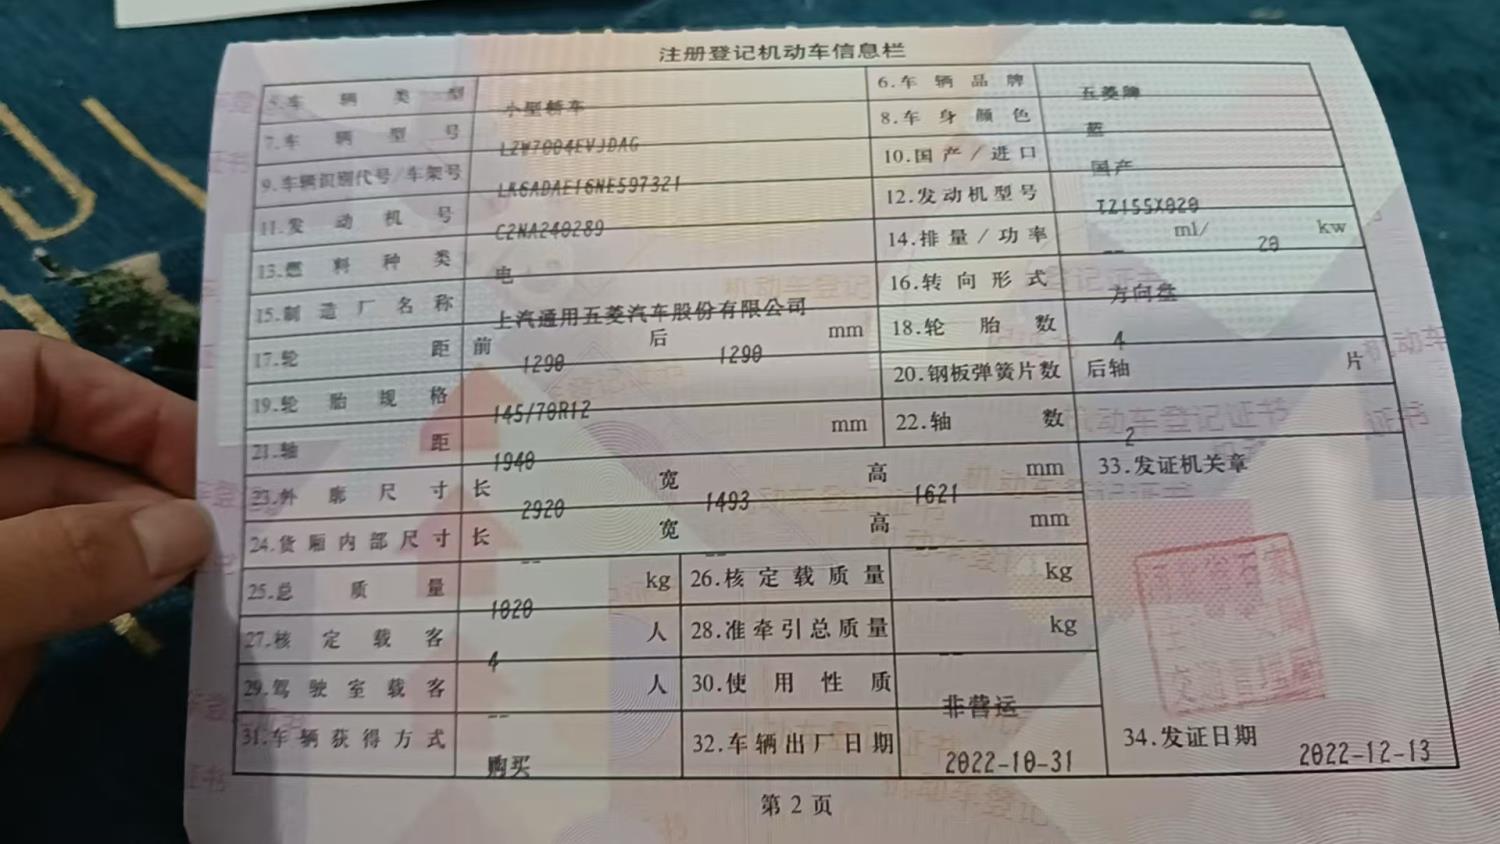 注册登记机动车信息栏
5.车辆类型 小型轿车 6.车辆品牌 五菱牌
7.车辆型号 LZW7004EVJDAG 8.车身颜色 蓝
9.车辆识别代号/车架号 LK6ADAE16NE597321 10.国产/进口 国产
11.发动机号 C2NA240289 12.发动机型号 TZ155X020
13.燃料种类 电 14.排量/功率 -- ml/ 20 kw
15.制造厂名称 上汽通用五菱汽车股份有限公司 16.转向形式 方向盘
17.轮距 前 1290 后 1290 mm 18.轮胎数 4
19.轮胎规格 145/70R12 20.钢板弹簧片数 后轴 片
21.轴距 1940 mm 22.轴数 2
23.外廓尺寸 长 2920 宽 1493 高 1621 mm 33.发证机关章
24.货厢内部尺寸 长 -- 宽 -- 高 -- mm
25.总质量 1020 kg 26.核定载质量 -- kg
27.核定载客 4 人 28.准牵引总质量 -- kg
29.驾驶室载客 -- 人 30.使用性质 非营运
31.车辆获得方式 购买 32.车辆出厂日期 2022-10-31 34.发证日期 2022-12-13
第2页